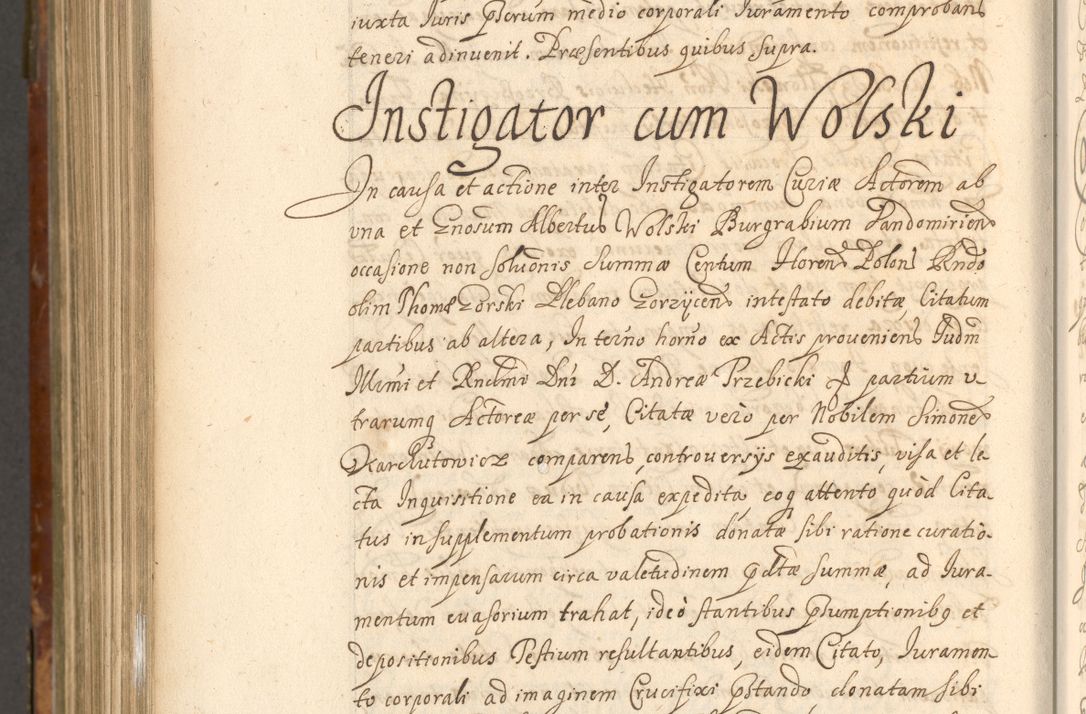 iuxta Iuris pscrum medio corporali Iuramento comprobans
teneri adinvenit. Præsentibus quibus supra.
Instigator cum Wolski
In causa et actione inter Instigatorem Curiæ Actorem ab
vna et Gnosum Albertus Wolski Burgrabium Sandomirien
occasione non solvonis Summæ Centum Floren Polon Rndo
olim Thomæ Gorski Plebano Gorzÿcen intestato debitæ Citatum
partibus ab altera, In terno horno ex Actis proveniens Iudm
Illrmi et Rndmi Dni D. Andreæ Trzebicki partium v
trarumq Actoreæ per sè, Citatæ verò per Nobilem Simone
Karchutowicz comparens, controversÿs exauditis, visa et le
cta Inquisitione ea in causa expedita, eoq attento quòd Cita-
tus in supplementum probationis donatæ sibi ratione curatio-
nis et impensarum circa valetudinem pdctæ Summæ, ad Iura-
mentum evasorium trahat, ideò stantibus psumptionibq et
depositionibus Testium resultantibus, eidem Citato, Iuramen
to corporali ad imaginem Crucifixi pstando donatam sibi